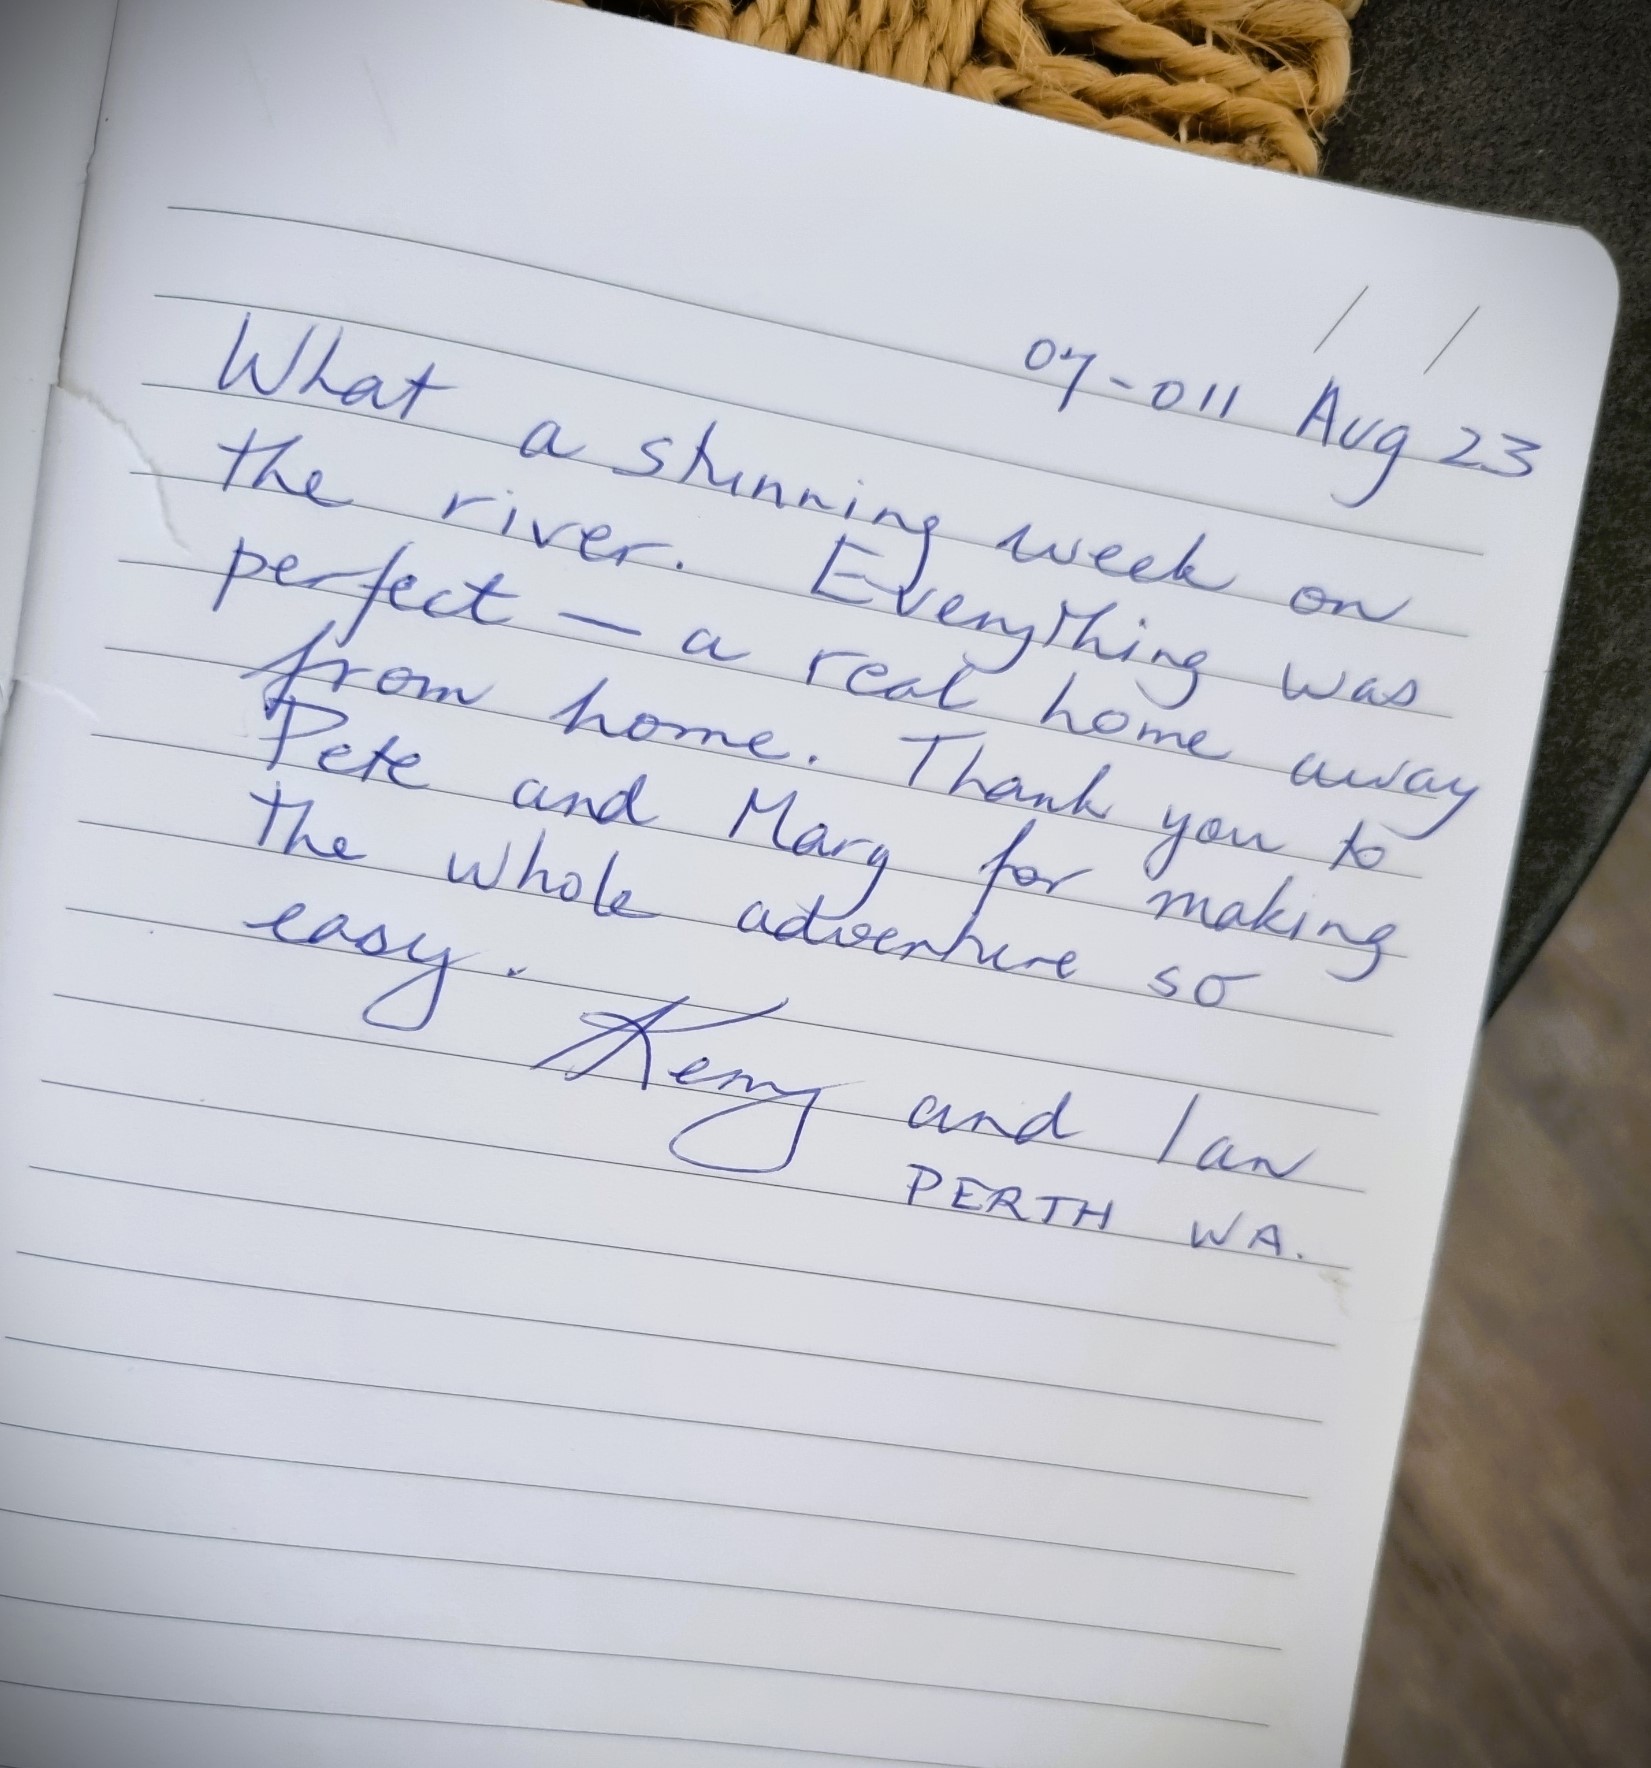 / /
07-011 Aug 23
What a stunning week on
the river. Everything was
perfect – a real home away
from home. Thank you to
Pete and Mary for making
the whole adventure so
easy.
Kerry and Ian
PERTH WA.